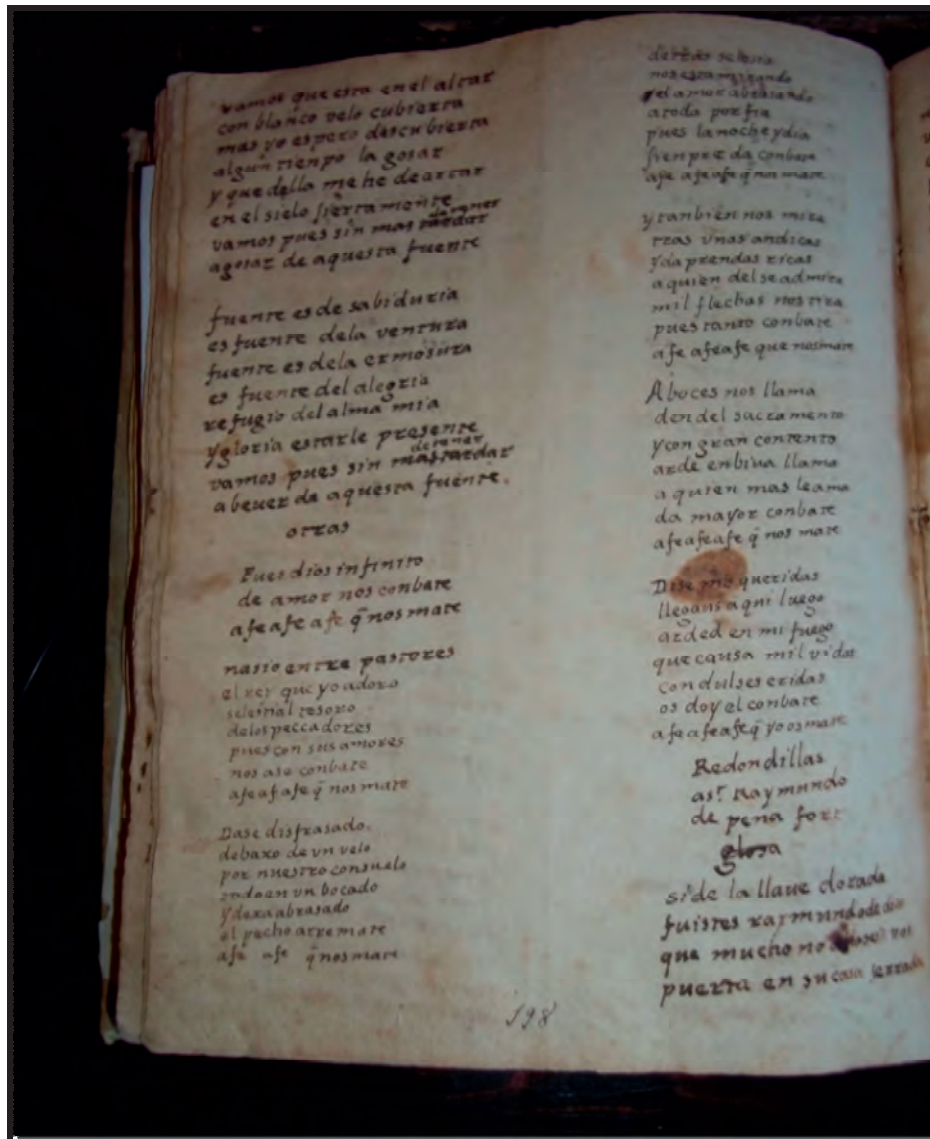 vamos que esta en el altar
con blanco velo cubierta
mas yo espero descubierta
algun tienpo la gosar
y que della me he de artar
en el sielo siertamente
vamos pues sin mas tardar detener
agosar de aquesta fuente
fuente es de sabiduria
es fuente dela ventura
fuente es dela ermosura
es fuente del alegria
refugio del alma mia
y gloria estarle presente
vamos pues sin mas tardar detener
abeuer de aquesta fuente.
otras
Pues dios infinito
de amor nos conbate
afe afe afe q̃ nos mate
nasio entre pastores
el rei que yo adoro
selestial tesoro
delos peccadores
pues con sus amores
nos ase conbate
afe af afe q̃ nos mate
Dase disfrasado.
debaxo de vn velo
por nuestro consuelo
en vn bocado
y dexa abrasado
el pecho
afe afe q̃ nos mate
detras
nos esta mirando
y el amor abrasando
atoda porfia
pues la noche y dia
sienpre da conbate
afe afe afe q̃ nos mate
y tanbien nos mira
tras vnas andicas
y da prendas ricas
a quien del se admira
mil flechas nos tira
pues tanto conbate
afe afe afe que nos mate
A boces nos llama
den del sacramento
y con gran contento
arde en biua llama
a quien mas le ama
da mayor conbate
afe afe afe q̃ nos mate
Dise mis queridas
llegaus aqui luego
arded en mi fuego
que causa mil vidas
con dulses eridas
os doy el conbate
afe afe afe q̃ yo os mate
Redondillas
a sᵗ. Raymundo
de pena fort
glosa
si de la llaue dorada
fuistes raimundo de dios
que mucho no vos
puerta en su casa serrada
198